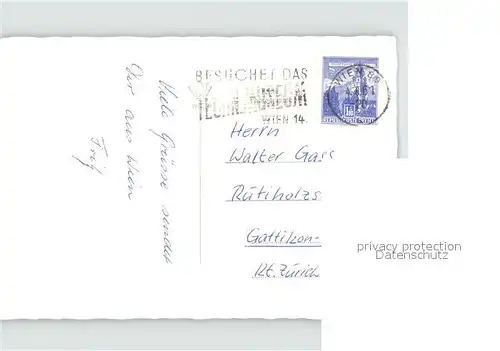 BESUCHET DAS
TECHN. MUSEUM
WIEN 14.
WIEN
Herrn
Walter Gass
Rütiholzs
Gattikon-
Kt. Zürich
Viele Grüsse sendet
Dir aus Wien
Fritz
privacy protection
Datenschutz